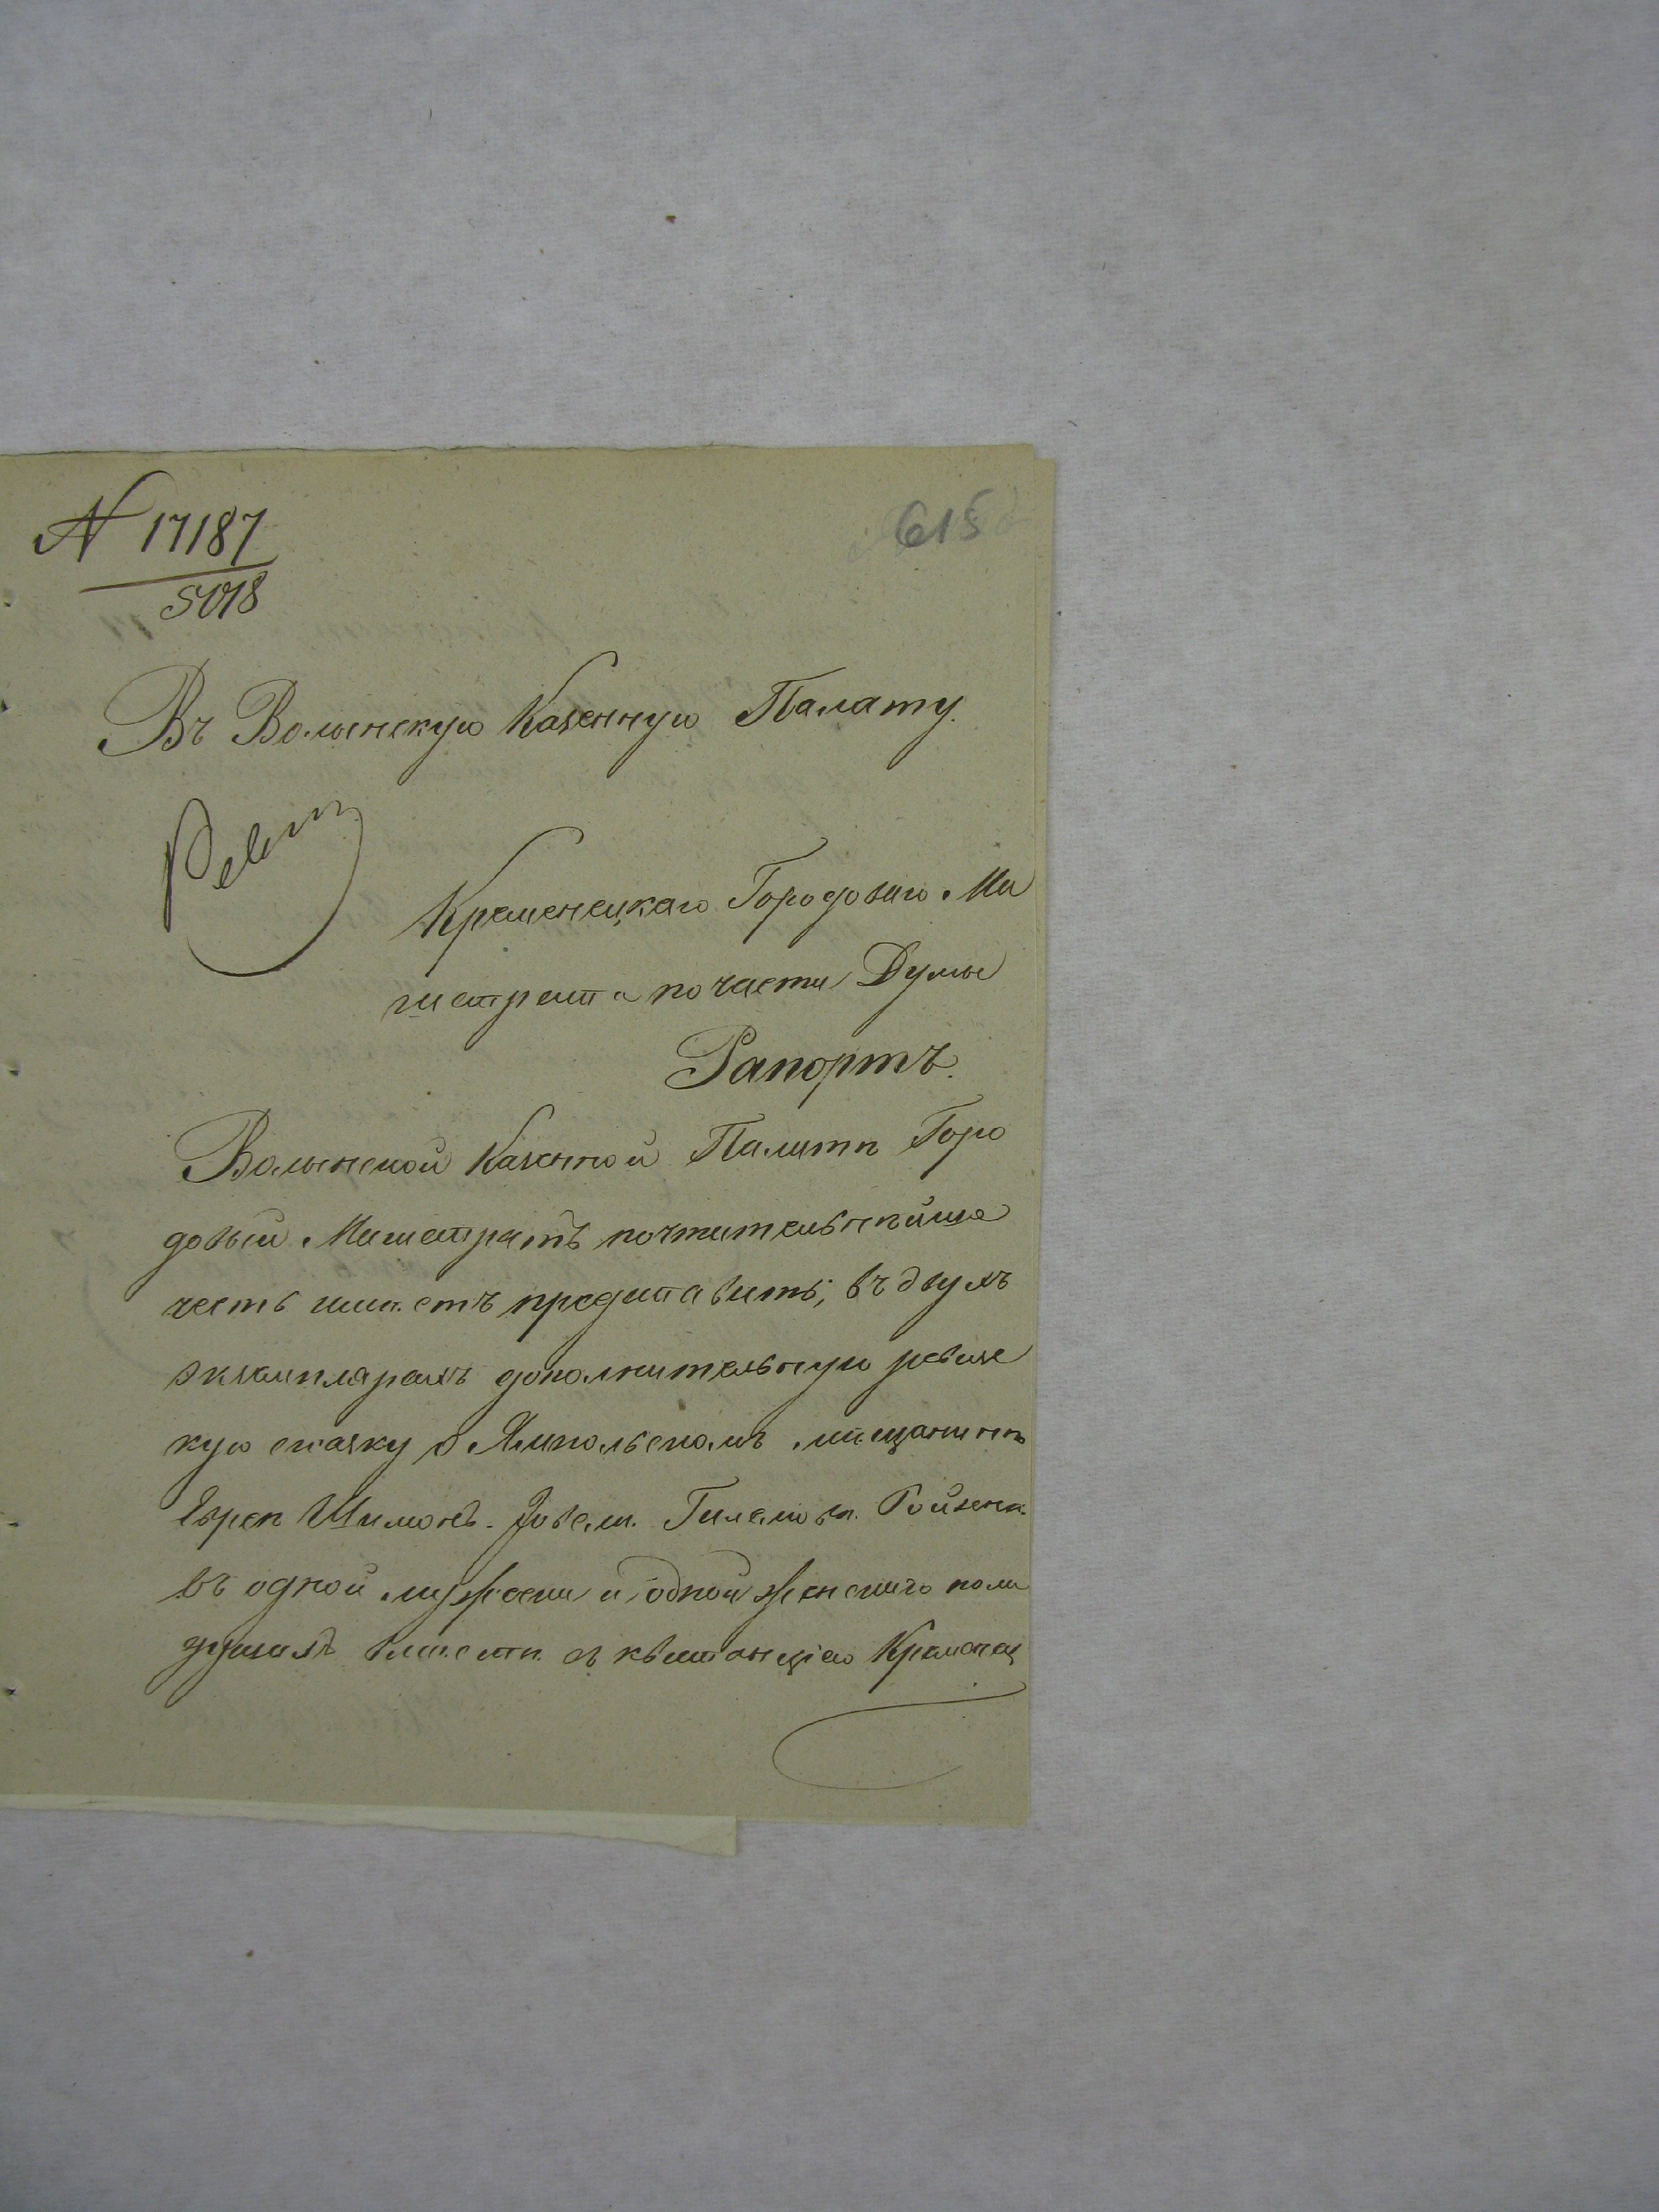 N 17187
615
5018
Въ Волынскую Казенную Палату.
Ревиз
Кременецкаго Городоваго Ма
гистрата по части Думы
Рапортъ.
Волынской Казенной Палатѣ Горо
довый Магистратъ почтительнѣйше
честь имѣетъ представить, въ двухъ
экземплярахъ дополнительную ревизс
кую сказку о Ямпольскомъ мѣщанинѣ
Евреѣ Шимонѣ
въ одной мужеска и одной женскаго пола
душахъ вмѣстѣ съ квитанціею Кременец